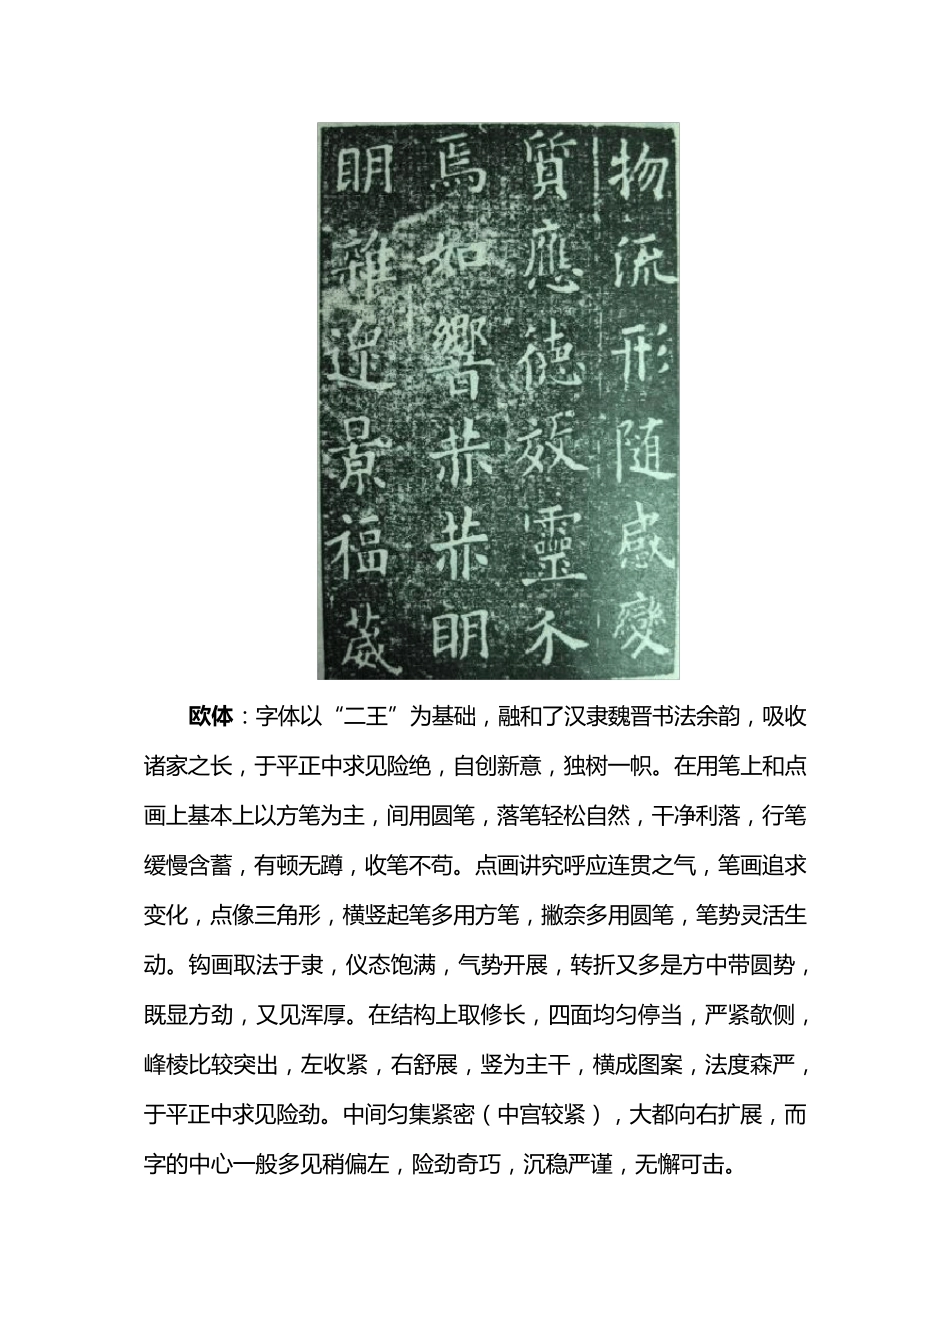 物流形随感變
質應德效靈不
焉如響赫赫明
明雜遝景福葳
欧体：字体以“二王”为基础，融和了汉隶魏晋书法余韵，吸收
诸家之长，于平正中求见险绝，自创新意，独树一帜。在用笔上和点
画上基本上以方笔为主，间用圆笔，落笔轻松自然，干净利落，行笔
缓慢含蓄，有顿无蹲，收笔不苟。点画讲究呼应连贯之气，笔画追求
变化，点像三角形，横竖起笔多用方笔，撇奈多用圆笔，笔势灵活生
动。钩画取法于隶，仪态饱满，气势开展，转折又多是方中带圆势，
既显方劲，又见浑厚。在结构上取修长，四面均匀停当，严紧欹侧，
峰棱比较突出，左收紧，右舒展，竖为主干，横成图案，法度森严，
于平正中求见险劲。中间匀集紧密（中宫较紧），大都向右扩展，而
字的中心一般多见稍偏左，险劲奇巧，沉稳严谨，无懈可击。